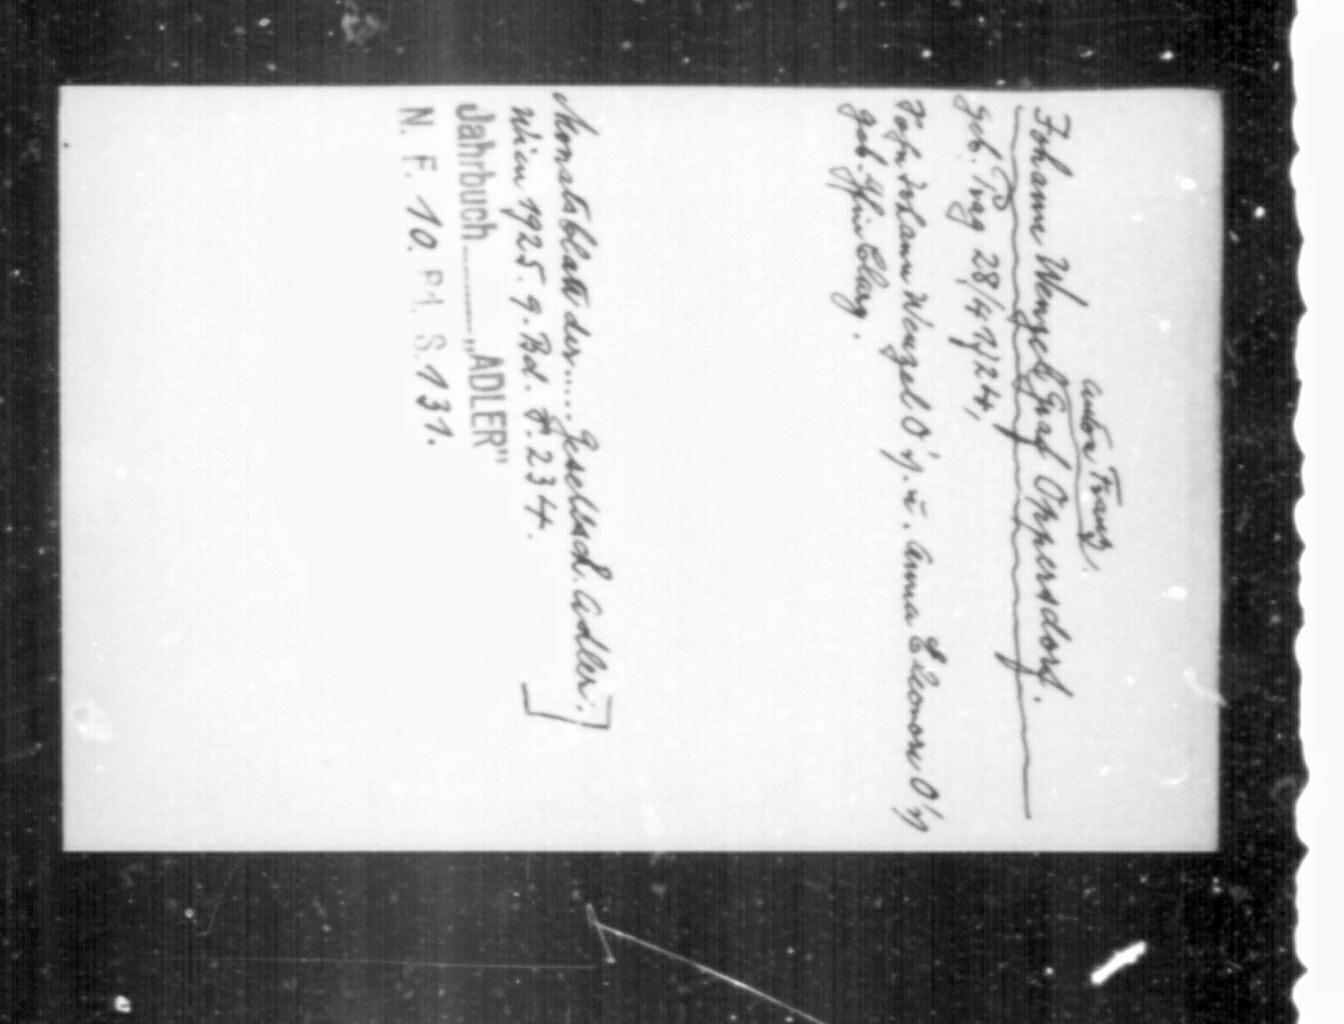 Anton Franz.
Johann Wenzel Graf Oppersdorf.
geb. Prag 28/4 1724,
Sohn Johann Wenzel O's. u. Anna Eleonore O's
geb. Gfin Clary.
Monatsblatt der..... Gesellsch. Adler.]
Wien 1925. 9. Bd. S. 234.
Jahrbuch ........ „ADLER"
N. F. 10. Bd. S. 131.